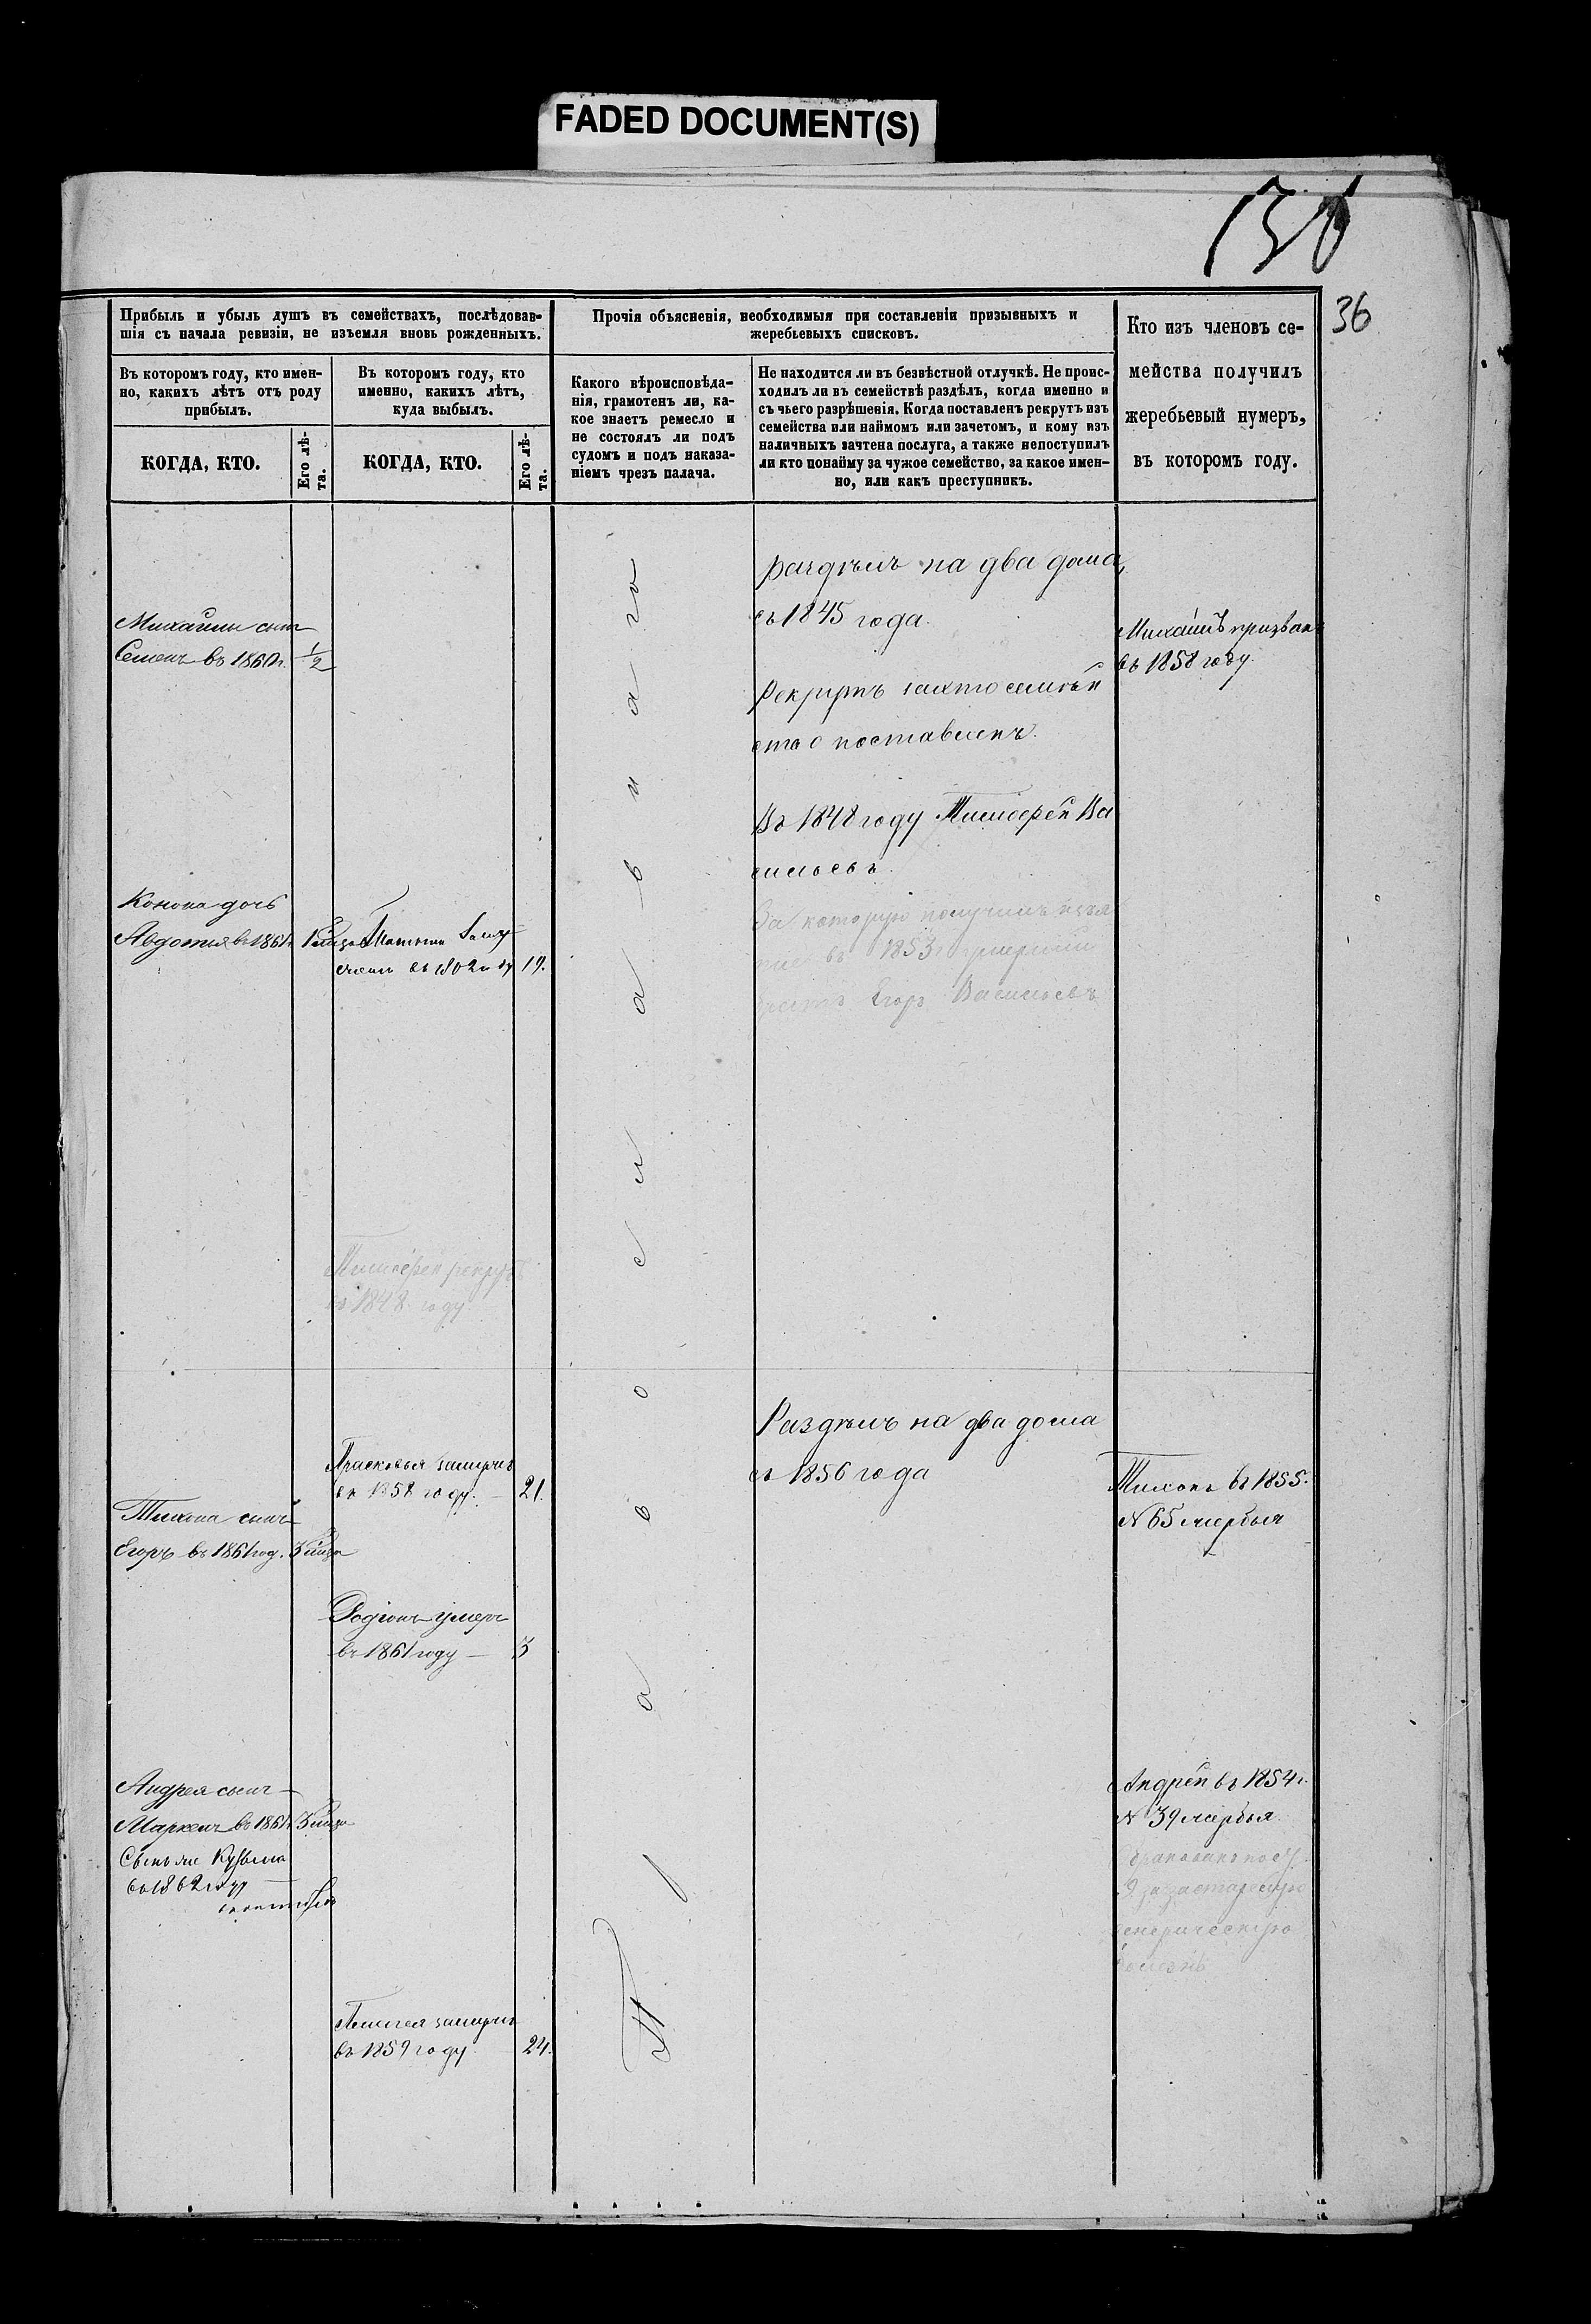 FADED DOCUMENT(S)
136
36
Прибыль и убыль душъ въ семействахъ, послѣдовав-
шія съ начала ревизіи, не изъемля вновь рожденныхъ.
Въ которомъ году, кто имен-
но, какихъ лѣтъ отъ роду
прибылъ.
КОГДА, КТО.
Его лѣ-
та.
Въ которомъ году, кто
именно, какихъ лѣтъ,
куда выбылъ.
КОГДА, КТО.
Его лѣ-
та.
Прочія объясненія, необходимыя при составленіи призывныхъ и
жеребьевыхъ списковъ.
Какого вѣроисповѣда-
нія, грамотенъ ли, ка-
кое знаетъ ремесло и
не состоялъ ли подъ
судомъ и подъ наказа-
ніемъ чрезъ палача.
Не находится ли въ безвѣстной отлучкѣ. Не проис-
ходилъ ли въ семействѣ раздѣлъ, когда именно и
съ чьего разрѣшенія. Когда поставленъ рекрутъ изъ
семейства или наймомъ или зачетомъ, и кому изъ
наличныхъ зачтена послуга, а также непоступилъ
ли кто понайму за чужое семейство, за какое имен-
но, или какъ преступникъ.
Кто изъ членовъ се-
мейства получилъ
жеребьевый нумеръ,
въ которомъ году.
Михаилы сынъ
Семенъ въ 1860 г. 1/2
Конона дочь
Авдотья въ 1861
Татьяна
въ 1862 году 19.
Тимофей рекрутъ
въ 1848 году
Православнаго
раздѣлъ на два дома,
съ 1845 года.
Рекрутъ
поставленъ.
Въ 1848 году Тимофей Ва
сильевъ.
За которую получилъ
въ 1853 г умершій
братъ Егоръ Васильевъ
Михаилъ призван
въ 1858 году.
Прасковья замужъ
въ 1858 году. 21.
Тихона сынъ
Егоръ въ 1861 год. 3
Родіонъ умеръ
въ 1861 году — 3
Раздѣлъ на два дома
съ 1856 года
Тихонъ въ 1855.
N 65 жеребья
Андрея сынъ
Маркелъ въ 1861 3
Сынъ же Кузьма
въ 1862 году
Андрей въ 1854 г.
N 39 жербья.
застарелую
венерическую
болезнь
Пелагея замужъ
въ 1859 году 24.